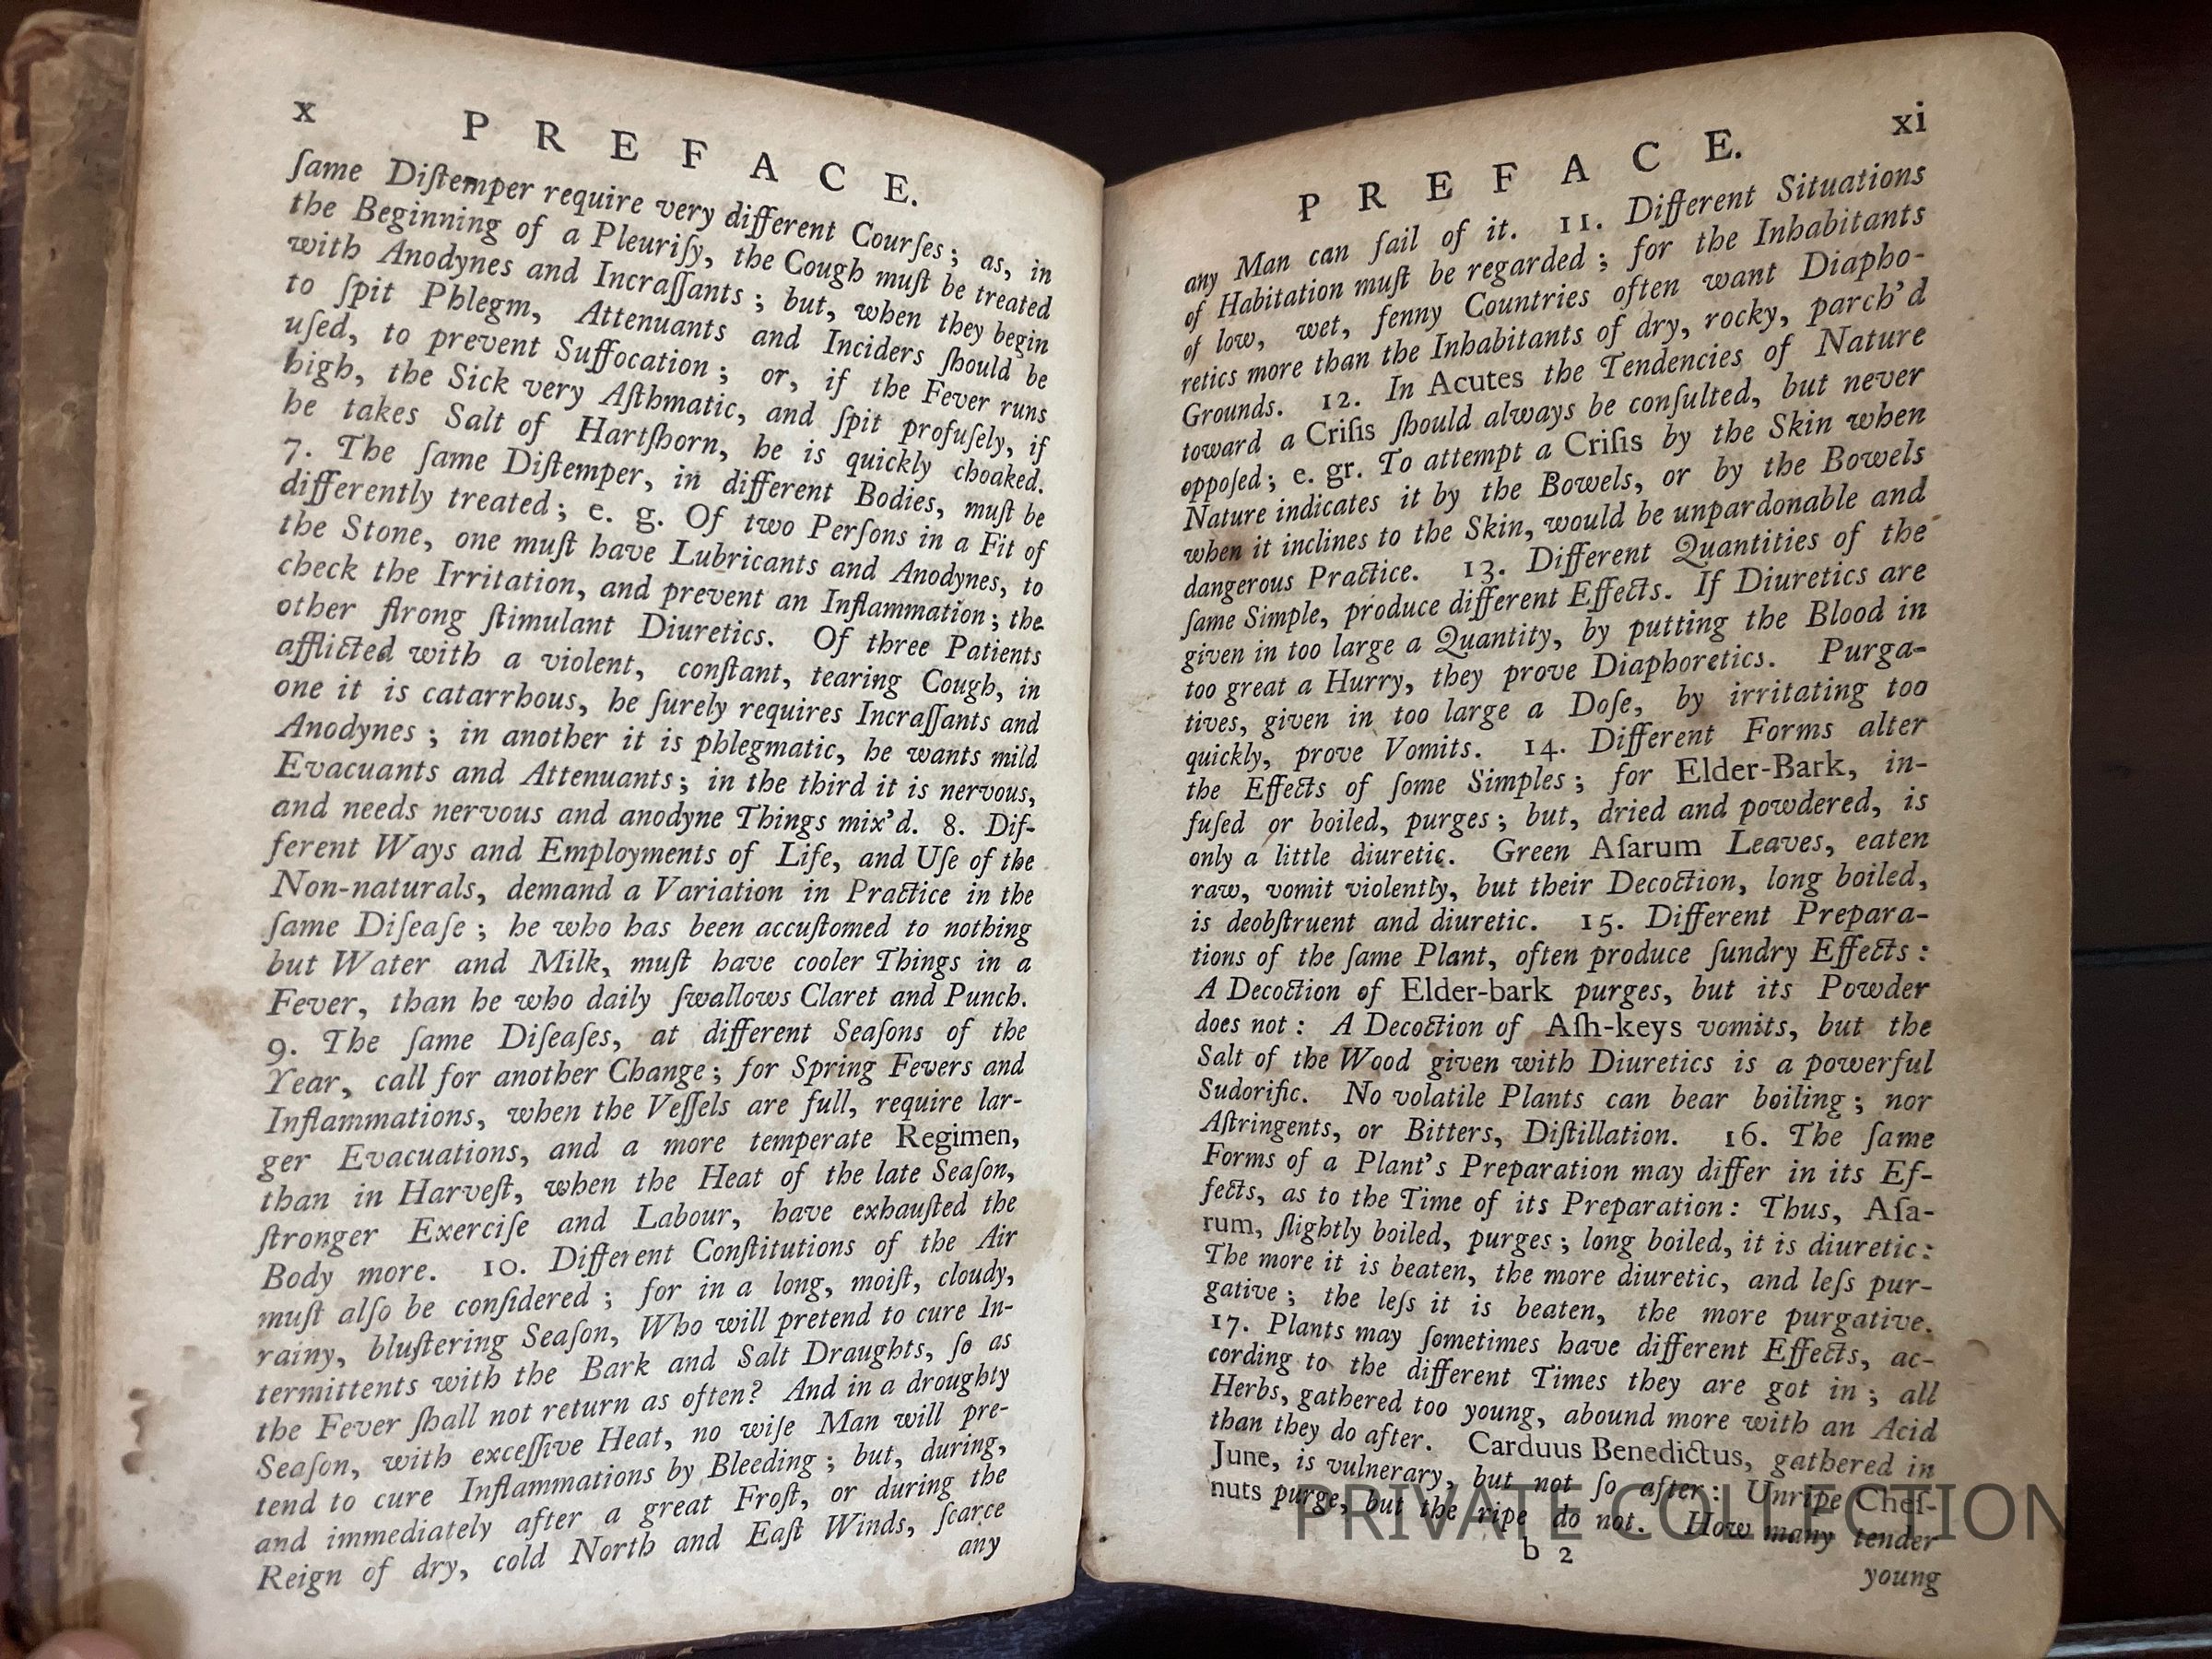 x
PREFACE.
ſame Diſtemper require very different Courſes; as, in
the Beginning of a Pleuriſy, the Cough muſt be treated
with Anodynes and Incraſſants; but, when they begin
to ſpit Phlegm, Attenuants and Inciders ſhould be
uſed, to prevent Suffocation; or, if the Fever runs
high, the Sick very Aſthmatic, and ſpit profuſely, if
he takes Salt of Hartſhorn, he is quickly choaked.
7. The ſame Diſtemper, in different Bodies, muſt be
differently treated; e. g. Of two Perſons in a Fit of
the Stone, one muſt have Lubricants and Anodynes, to
check the Irritation, and prevent an Inflammation; the
other ſtrong ſtimulant Diuretics. Of three Patients
afflicted with a violent, conſtant, tearing Cough, in
one it is catarrhous, he ſurely requires Incraſſants and
Anodynes; in another it is phlegmatic, he wants mild
Evacuants and Attenuants; in the third it is nervous,
and needs nervous and anodyne Things mix'd. 8. Dif-
ferent Ways and Employments of Life, and Uſe of the
Non-naturals, demand a Variation in Practice in the
ſame Diſeaſe; he who has been accuſtomed to nothing
but Water and Milk, muſt have cooler Things in a
Fever, than he who daily ſwallows Claret and Punch.
9. The ſame Diſeaſes, at different Seaſons of the
Year, call for another Change; for Spring Fevers and
Inflammations, when the Veſſels are full, require lar-
ger Evacuations, and a more temperate Regimen,
than in Harveſt, when the Heat of the late Seaſon,
ſtronger Exerciſe and Labour, have exhauſted the
Body more. 10. Different Conſtitutions of the Air
muſt alſo be conſidered; for in a long, moiſt, cloudy,
rainy, bluſtering Seaſon, Who will pretend to cure In-
termittents with the Bark and Salt Draughts, ſo as
the Fever ſhall not return as often? And in a droughty
Seaſon, with exceſſive Heat, no wiſe Man will pre-
tend to cure Inflammations by Bleeding; but, during,
and immediately after a great Froſt, or during the
Reign of dry, cold North and Eaſt Winds, ſcarce
any
xi
PREFACE.
any Man can fail of it. 11. Different Situations
of Habitation muſt be regarded; for the Inhabitants
of low, wet, fenny Countries often want Diapho-
retics more than the Inhabitants of dry, rocky, parch'd
Grounds. 12. In Acutes the Tendencies of Nature
toward a Criſis ſhould always be conſulted, but never
oppoſed; e. gr. To attempt a Criſis by the Skin when
Nature indicates it by the Bowels, or by the Bowels
when it inclines to the Skin, would be unpardonable and
dangerous Practice. 13. Different Quantities of the
ſame Simple, produce different Effects. If Diuretics are
given in too large a Quantity, by putting the Blood in
too great a Hurry, they prove Diaphoretics. Purga-
tives, given in too large a Doſe, by irritating too
quickly, prove Vomits. 14. Different Forms alter
the Effects of ſome Simples; for Elder-Bark, in-
fuſed or boiled, purges; but, dried and powdered, is
only a little diuretic. Green Aſarum Leaves, eaten
raw, vomit violently, but their Decoction, long boiled,
is deobſtruent and diuretic. 15. Different Prepara-
tions of the ſame Plant, often produce ſundry Effects:
A Decoction of Elder-bark purges, but its Powder
does not: A Decoction of Aſh-keys vomits, but the
Salt of the Wood given with Diuretics is a powerful
Sudorific. No volatile Plants can bear boiling; nor
Aſtringents, or Bitters, Diſtillation. 16. The ſame
Forms of a Plant's Preparation may differ in its Ef-
fects, as to the Time of its Preparation: Thus, Aſa-
rum, ſlightly boiled, purges; long boiled, it is diuretic:
The more it is beaten, the more diuretic, and leſs pur-
gative; the leſs it is beaten, the more purgative.
17. Plants may ſometimes have different Effects, ac-
cording to the different Times they are got in; all
Herbs, gathered too young, abound more with an Acid
than they do after. Carduus Benedictus, gathered in
June, is vulnerary, but not ſo after: Unripe Cheſ-
nuts purge, but the ripe do not. How many tender
b 2
young
PRIVATE COLLECTION